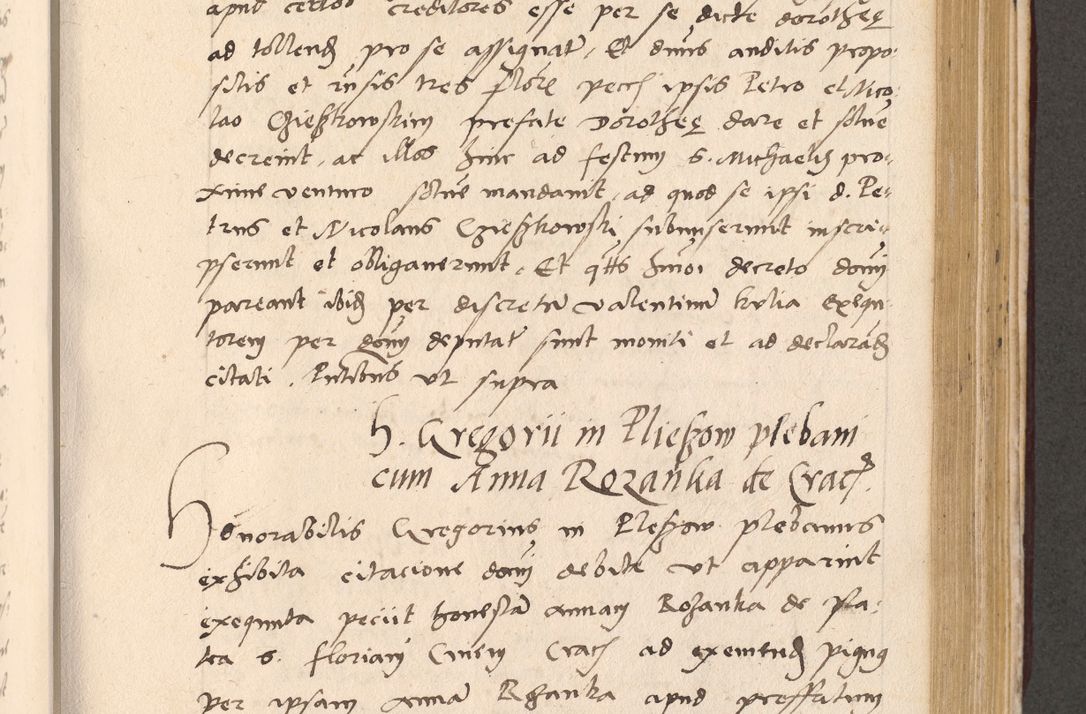 apud certos creditores esse per se dicte dorotheę
ad tollend pro se assignat, Et dnus auditis propo-
sitis et visis tres flore pecc ipsis Petro et Nico-
lao Czieszkowskim prefate Dorotheę dare et solue
decreuit, ac illos hinc ad festum S. Michaelis pro-
xime venturo solue mandauit, ad quod se ipsi d. Pe-
trus et Nicolaus Czieszkowski submiserunt inscri-
pserunt et obligauerunt, Et qtts hmoi decreto dom
pareant ibid per discretu Valentinu Kulia exequ-
torem per dom deputat sunt moniti et ad declarand
citati. Pntibus vt supra
h. Gregorii in Plieszow plebani
cum Anna Rozanka de Crac.
Honorabilis Gregorius in Pleszow plebanus
exhibita citacione dom debite vt apparuit
exequuta peciit honesta Annam Rozanka de pla-
tea S. Floriani Ciuem Crac ad exemend pignq
per ipsam Anna Rozanka apud preffatum